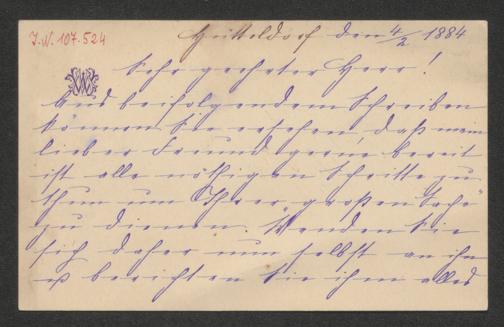 I.N. 107.524
Hütteldorf den 4/2 1884
Sehr geehrter Herr!
Aus beifolgendem Schreiben
können Sie ersehen, daß mein
lieber Freund gerne bereit
ist alle nöthigen Schritte zu
thun um Ihrer großen Sache
zu dienen. Wenden Sie
sich daher nun selbst an ihn
u berichten Sie ihm alles